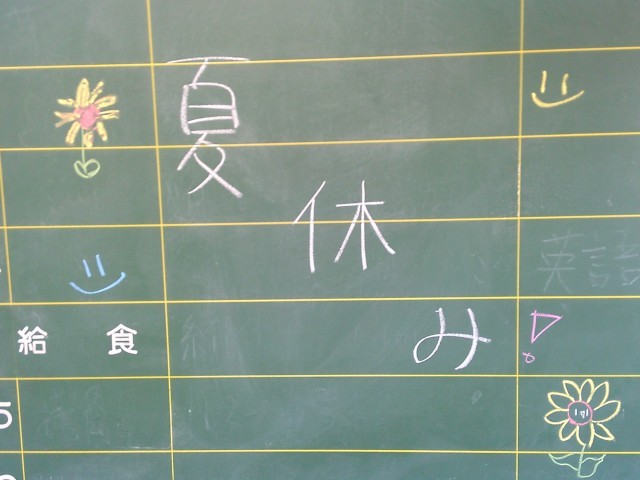 夏休み!
英語
給食
5